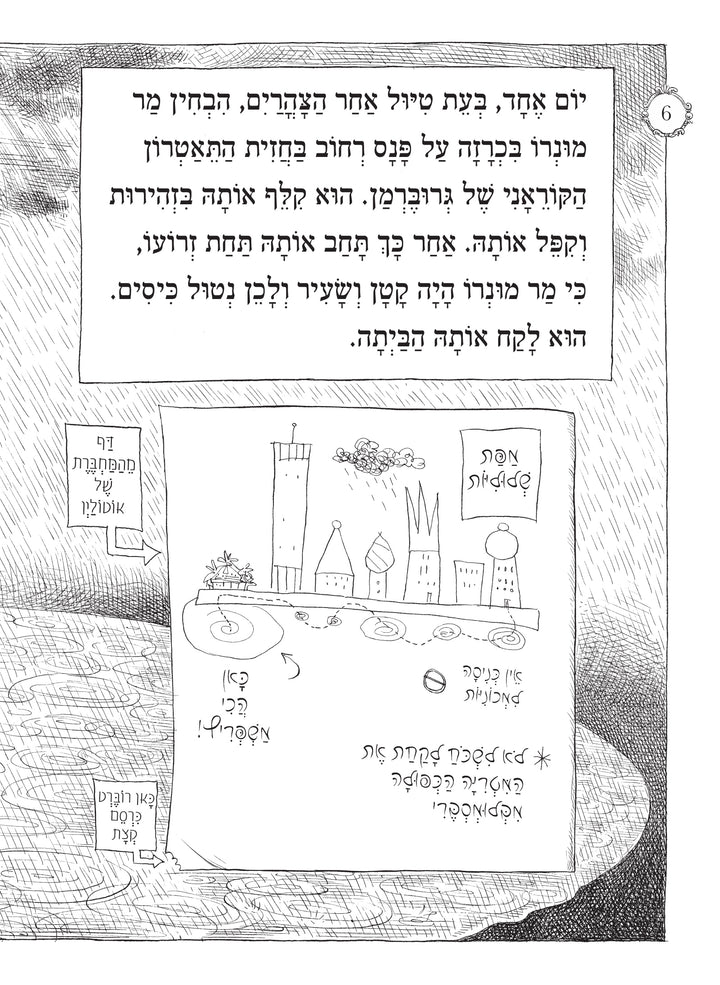 6
יוֹם אֶחָד, בְּעֵת טִיּוּל אַחַר הַצָּהֳרַיִם, הִבְחִין מַר
מוּנְרוֹ בִּכְרָזָה עַל פָּנַס רְחוֹב בַּחֲזִית הַתֵּאַטְרוֹן
הַקּוֹרֵאָנִי שֶׁל גְּרוּבֶּרְמַן. הוּא קִלֵּף אוֹתָהּ בִּזְהִירוּת
וְקִפֵּל אוֹתָהּ. אַחַר כָּךְ תָּחַב אוֹתָהּ תַּחַת זְרוֹעוֹ,
כִּי מַר מוּנְרוֹ הָיָה קָטָן וְשָׂעִיר וְלָכֵן נְטוּל כִּיסִים.
הוּא לָקַח אוֹתָהּ הַבַּיְתָה.
דַּף
מֵהַמַּחְבֶּרֶת
שֶׁל
אוֹטוֹלַיְן
מַפַּת
שְׁלוּלִיּוֹת
כָּאן
הֲכִי
מַשְׁפְּרִיץ!
אֵין כְּנִיסָה
לִמְכוֹנִיּוֹת
לֹא לִשְׁכֹּחַ לָקַחַת אֶת
הַמִּטְרִיָּה הַכְּפוּלָה
מִפְּלוּמְסְפֶּרִי
כָּאן רוֹבֶּרְט
כִּרְסֵם
קְצָת